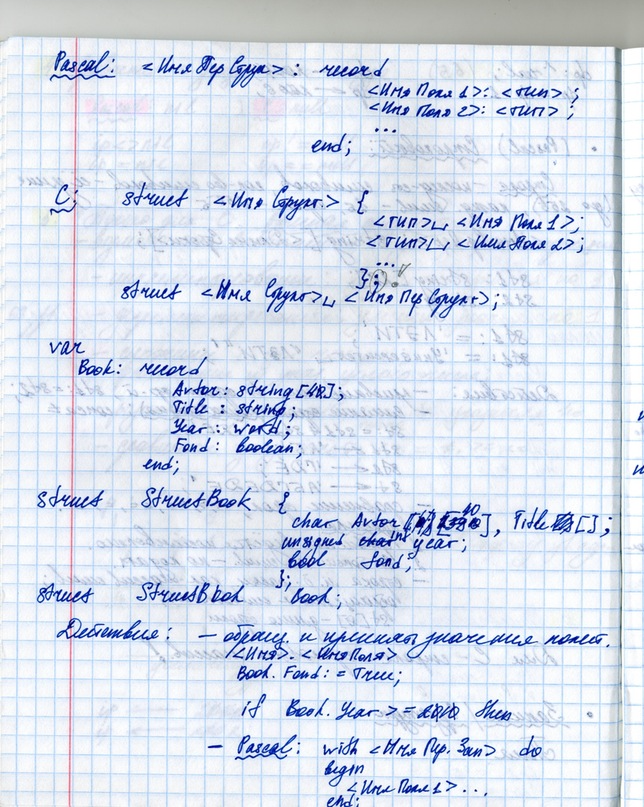 Pascal: <Имя Пер Струк> : record
<Имя Поля 1>: <тип>;
<Имя Поля 2>: <тип>;
...
end;
C: struct <Имя Структ.> {
<тип>␣ <Имя Поля 1>;
<тип>␣ <Имя Поля 2>;
...
};
struct <Имя Структ>␣ <Имя Пер Структ>;
var
Book: record
Avtor: string[40];
Title: string;
Year: word;
Fond: boolean;
end;
struct StructBook {
char Avtor [40], Title [];
unsigned int year;
bool fond;
};
struct StructBook Book;
Действия: – обращ. и принять значения полей.
<Имя>.<Имя Поля>
Book.Fond := True;
if Book.Year >= 2010 then
– Pascal: with <Имя Пер. Зап> do
begin
<Имя Поля 1> ...
end;